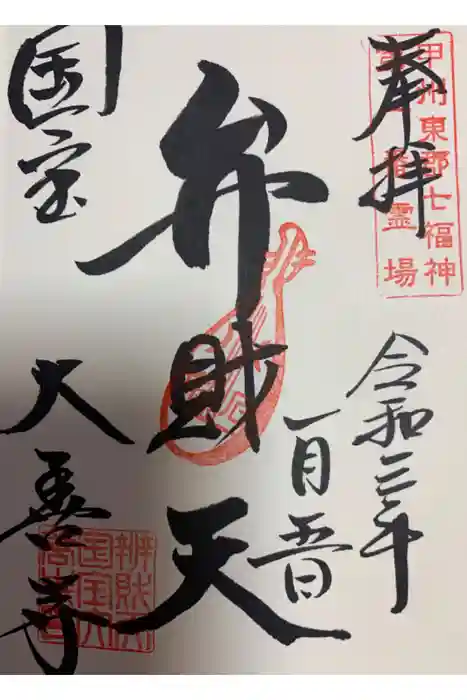 奉拝
甲州東郡七福神
霊場
令和三年
一月五日
弁財天
国宝
大善寺